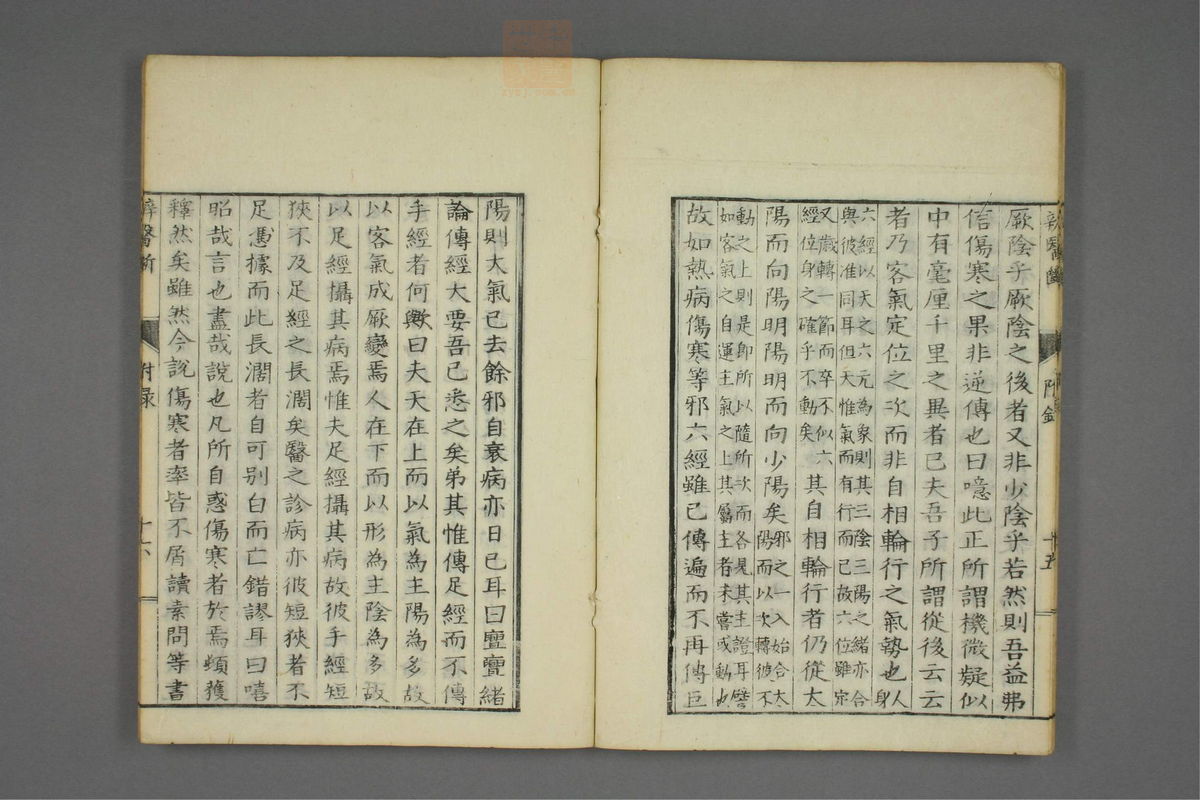 厥陰乎厥陰之後者又非少陰乎若然則吾益弗
信傷寒之果非逆傳也曰噫此正所謂機微疑似
中有毫厘千里之異者已夫吾子所謂從後云云
者乃客氣定位之次而非自相輪行之氣勢也人身
六經以天之六元為象則其三陰三陽之緒亦合
與彼准同耳但天惟氣而有行而已故六位雖定
又歲轉一節而卒不似六
經位身之確乎不動矣其自相輪行者仍從太
陽而向陽明陽明而向少陽矣邪之一入始合太
陽而以次轉彼不
動之上則是即所以隨所次而各見其主證耳譬
如客氣之自運主氣之上其屬主者未嘗或動也
故如熱病傷寒等邪六經雖已傳遍而不再傳巨
附錄
十五
陽則大氣已去餘邪自衰病亦日已耳曰亹亹緒
論傳經大要吾已悉之矣弟其惟傳足經而不傳
手經者何歟曰夫天在上而以氣為主陽為多故
以客氣成厥變焉人在下而以形為主陰為多故
以足經攝其病焉惟夫足經攝其病故彼手經短
狹不及足經之長濶矣醫之診病亦彼短狹者不
足憑據而此長濶者自可別白而亡錯謬耳曰嘻
昭哉言也盡哉說也凡所自惑傷寒者於焉頓獲
釋然矣雖然今說傷寒者率皆不屑讀素問等書
醫斷
附録
十六